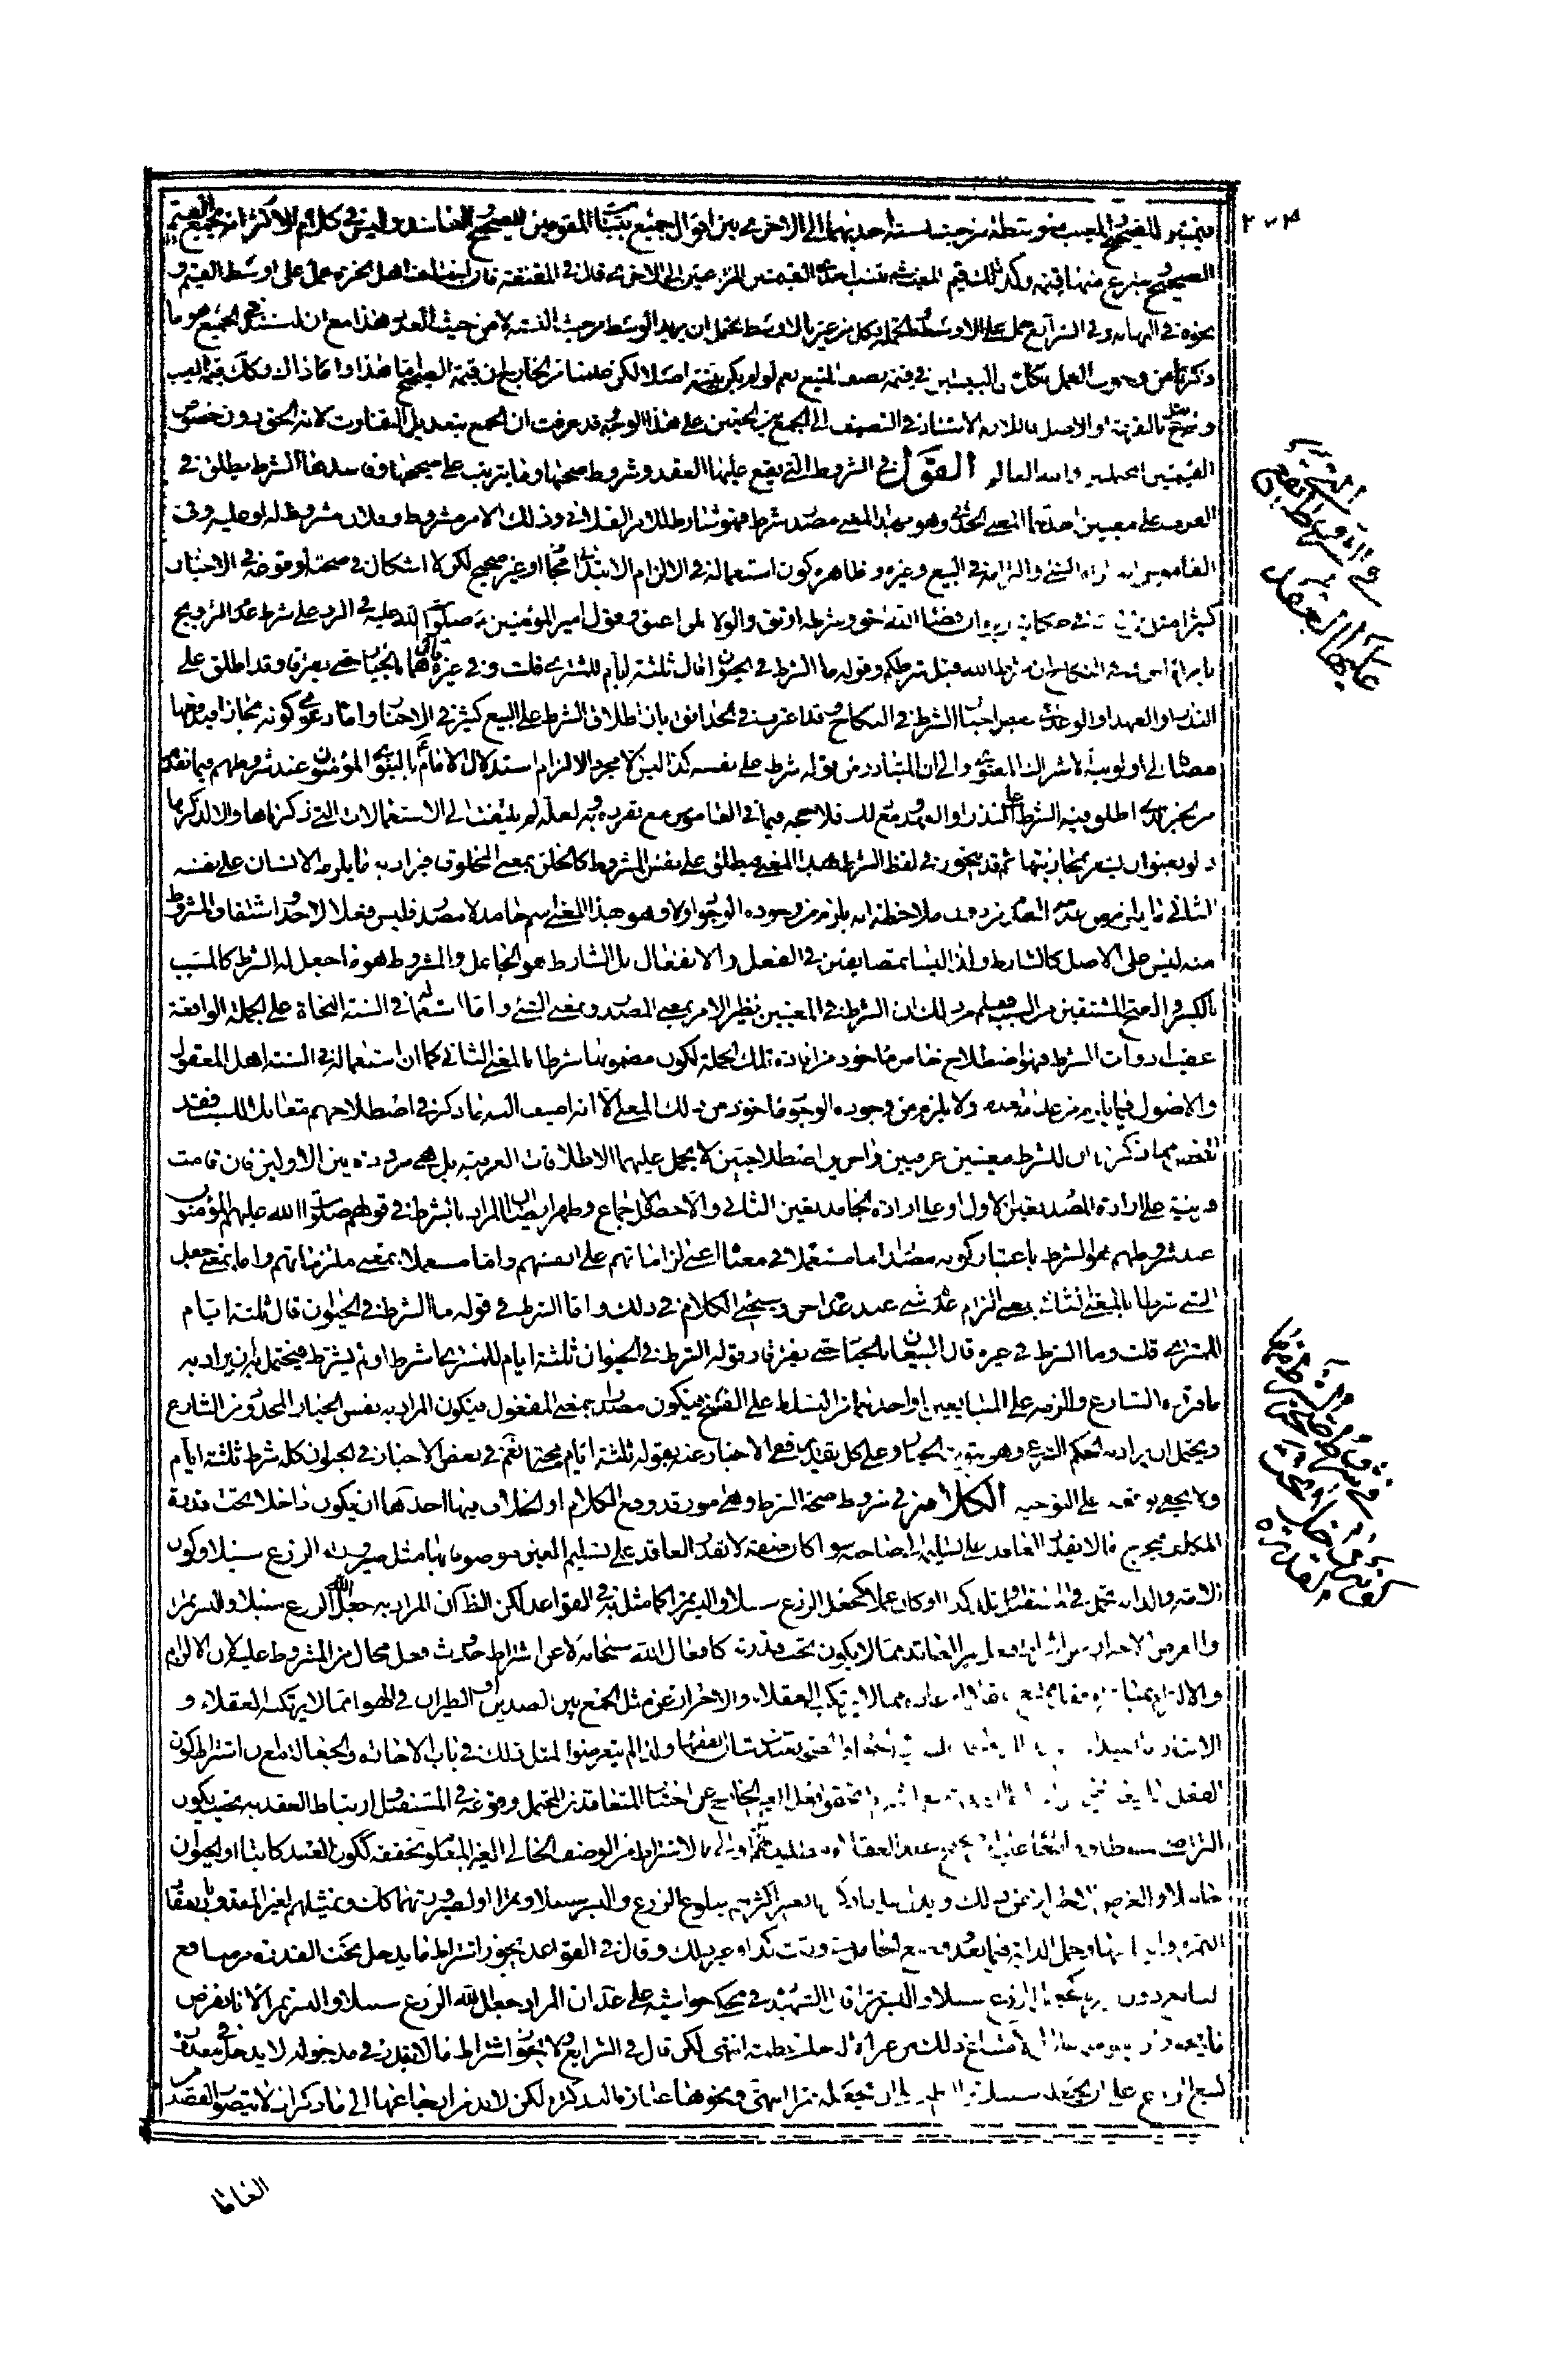 فيعتبر للصحيح والمعيب قيمة متوسطة من حيث نسبة احديهما الى الاخرى بين اقوال جميع بينات المقومين للصحيح والفاسد وليس في كلام الاكثر انه يجمع القيم
الصحيح ينتزع منها قيمة وكذلك قيم المعيب ثم تنسب احدى القيمتين المنتزعتين الى الاخرى قال في المقنعة فان اختلف اهل الخبرة عمل على اوسط القيم و
نحوه في النهاية وفي الشرايع عمل على الاوسط وبالجملة فكل من عبر بالاوسط يحتمل ان يريد الوسط من حيث النسبة لا من حيث العدد هذا مع ان المستند في الجميع هو ما
ذكرنا من وجوب العمل بكل من البينتين في قيمة نصف المبيع نعم لو لم يكن بينة اصلا لكن علمنا من الخارج ان قيمة الصحيح اما هذا واما ذاك وكذلك قيمة المعيب
ولم نقل بالقرعة او الاصل فاللازم الاستناد في التنصيف الى الجمع بين الحقين على هذا الوجه وقد عرفت ان الجمع بتعديل التفاوت لانه الحق دون خصوص
القيمتين المحتملتين والله العالم القول في الشروط التي يقع عليها العقد وشروط صحتها وما يترتب على صحيحها وفاسدها الشرط يطلق في
العرف على معنيين احدهما المعنى الحدثي وهو بهذا المعنى مصدر شرط فهو شارط للامر الفلاني وذلك الامر مشروط وفلان مشروط له او عليه وفي
القاموس انه الزام الشئ والتزامه في البيع وغيره وظاهره كون استعماله في الالزام الابتدائي مجازا او غير صحيح لكن لا اشكال في صحته لوقوعه في الاخبار
كثيرا مثل قوله في حكاية بريرة ان قضاء الله احق وشرطه اوثق والولاء لمن اعتق وقول امير المؤمنين صلوات الله عليه في الرد على شرط عدم التزويج
بامراة اخرى في النكاح ان شرط الله قبل شرطكم وقوله ما الشرط في الحيوان قال ثلثة ايام للمشتري قلت وفي غيره قال هما بالخيار حتى يفترقا وقد اطلق على
النذر او العهد او الوعد في بعض اخبار الشرط في النكاح وقد اعترف في الحدائق بان اطلاق الشرط على البيع كثير في الاخبار واما دعوى كونه مجازا فيدفعها
مضافا الى اولوية الاشتراك المعنوي والى ان المتبادر من قوله شرط على نفسه كذا ليس الا مجرد الالزام استدلال الامام بالنبوي المؤمنون عند شروطهم فيما تقدم
من الخبر الذي اطلق فيه الشرط على النذر او العهد ومع ذلك فلا حجة فيما في القاموس مع تفرده به ولعله لم يلتفت الى الاستعمالات التي ذكرناها والا لذكرها
ولو بعنوان يشعر بمجازيتها ثم قد يتجوز في لفظ الشرط بهذا المعنى فيطلق على نفس المشروط كالخلق بمعنى المخلوق فيراد به ما يلزمه الانسان على نفسه
الثاني ما يلزم من عدمه العدم من دون ملاحظة انه يلزم من وجوده الوجود او لا وهو بهذا المعنى اسم جامد لا مصدر فليس فعلا لاحد واشتقاق المشروط
منه ليس على الاصل كالشارط ولذا ليسا بمتضايفين في الفعل والانفعال بل الشارط هو الجاعل والمشروط هو ما جعل له الشرط كالمسبب
بالكسر والفتح المشتقين من السبب فعلم من ذلك ان الشرط في المعنيين نظير الامر بمعنى المصدر وبمعنى الشئ واما استعماله في السنة النحاة على الجملة الواقعة
عقيب ادوات الشرط فهو اصطلاح خاص ماخوذ من افادة تلك الجملة لكون مضمونها شرطا بالمعنى الثاني كما ان استعماله في السنة اهل المعقول
والاصول فيما يلزم من عدمه العدم ولا يلزم من وجوده الوجود ماخوذ من ذلك المعنى الا انه اضيف اليه ما ذكر في اصطلاحهم مقابلا للسبب فقد
تلخص مما ذكرنا ان للشرط معنيين عرفيين واخرين اصطلاحيين لا يحمل عليهما الاطلاقات العرفية بل هي مرددة بين الاولين فان قامت
قرينة على ارادة المصدر تعين الاول او على ارادة الجامد تعين الثاني والا حصل الاجماع وظهر ايضا ان المراد بالشرط في قولهم صلوات الله عليهم المؤمنون
عند شروطهم هو الشرط باعتبار كونه مصدرا اما مستعملا في معناه اعني الزاماتهم على انفسهم واما مستعملا بمعنى ملتزماتهم واما بمعنى جعل
الشئ شرطا بالمعنى الثاني بمعنى التزام عدم شئ عند عدم اخر وسيجئ الكلام في ذلك واما الشرط في قوله ما الشرط في الحيوان قال ثلثة ايام
للمشتري قلت وما الشرط في غيره قال البيعان بالخيار حتى يفترقا وقوله الشرط في الحيوان ثلثة ايام للمشتري اشترط او لم يشترط فيحتمل ان يراد به
ما قرره الشارع والزمه على المتبايعين او احدهما من التسلط على الفسخ فيكون مصدرا بمعنى المفعول فيكون المراد به نفس الخيار المحدود من الشارع
ويحتمل ان يراد به الحكم الشرعي وهو ثبوت الخيار وعلى كل تقدير ففي الاخبار عنه بقوله ثلثة ايام مسامحة نعم في بعض الاخبار في الحيوان كله شرط ثلثة ايام
ولا يخفى توقفه على التوجيه الكلام في شروط صحة الشرط وهي امور قد وقع الكلام او الخلاف فيها احدها ان يكون داخلا تحت قدرة
المكلف فيخرج ما لا يقدر العاقد على تسليمه الى صاحبه سواء كان صفة لا يقدر العاقد على تسليم العين موصوفا بها مثل صيرورة الزرع سنبلا وكون
الامة والدابة تحمل في المستقبل او تلد كذا او كان عملا كجعل الزرع سنبلا والبسر تمرا كما مثل به في القواعد لكن الظ ان المراد به جعل الله الزرع سنبلا والبسر تمرا
والغرض الاحتراز عن اشتراط فعل غير العاقد مما لا يكون تحت قدرته كافعال الله سبحانه لا عن اشتراط حدوث فعل محال من المشروط عليه لان الالزام
والالتزام بمباشرة فعل ممتنع عقلا او عادة مما لا يرتكبه العقلاء والاحتراز عن مثل الجمع بين الضدين او الطيران في الهواء مما لا يرتكبه العقلاء و
الاتيان بالقيد المخرج لذلك والحكم عليه بعدم الجواز والصحة بعيد عن شان الفقهاء ولذا لم يتعرضوا لمثل ذلك في باب الاجارة والجعالة مع ان اشتراط كون
الفعل سائغا يغني عن اشتراط القدرة نعم اشتراط تحقق فعل الغير الخارج عن اختيار المتعاقدين المحتمل وقوعه في المستقبل وارتباط العقد به بحيث يكون
التراضي منوطا به وواقعا عليه امر صحيح عند العقلاء مطلوب لهم بل اولى بالاشتراط من الوصف الحالي الغير المعلوم تحققه ككون العبد كاتبا او الحيوان
حاملا والغرض الاحتراز عن ذلك ويدل على ما ذكرنا تعبير اكثرهم ببلوغ الزرع والبسر سنبلا وتمرا او لصيرورتهما كذلك وتمثيلهم لغير المقدور بانعقاد
الثمرة وايناعها وحمل الدابة فيما بعد ووضع الحامل في وقت كذا وغير ذلك وقال في القواعد يجوز اشتراط ما يدخل تحت القدرة من منافع
البايع دون غيره كجعل الزرع سنبلا والبسر تمرا قال الشهيد في محكي حواشيه على عد ان المراد جعل الله الزرع سنبلا والبسر تمرا لانا انما نفرض
ما يجوز ان يتوهمه عاقل لامتناع ذلك من غير الاله جلت عظمته انتهى لكن قال في الشرايع ولا يجوز اشتراط ما لا يقدر في مدخوله لا يدخل في مقدوره
كبيع الزرع على ان يجعله سنبلا والرطب على ان يجعله تمرا انتهى ونحوها عبارة التذكرة لكن لا بد من ارجاعها الى ما ذكر اذ لا يتصور القصد
٢٠٣
القول في الشروط التي يقع عليها العقد
في شروط صحة الشرط منها كونه داخلا تحت قدرة
العاقل